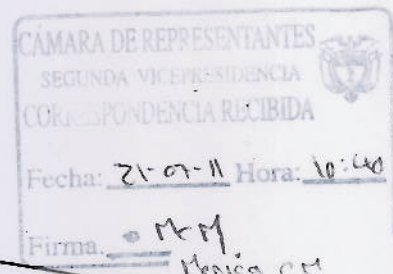 CÁMARA DE REPRESENTANTES
SEGUNDA VICEPRESIDENCIA
CORRESPONDENCIA RECIBIDA
Fecha: 21-07-11 Hora: 10:40
Firma. M-M
Monica CM